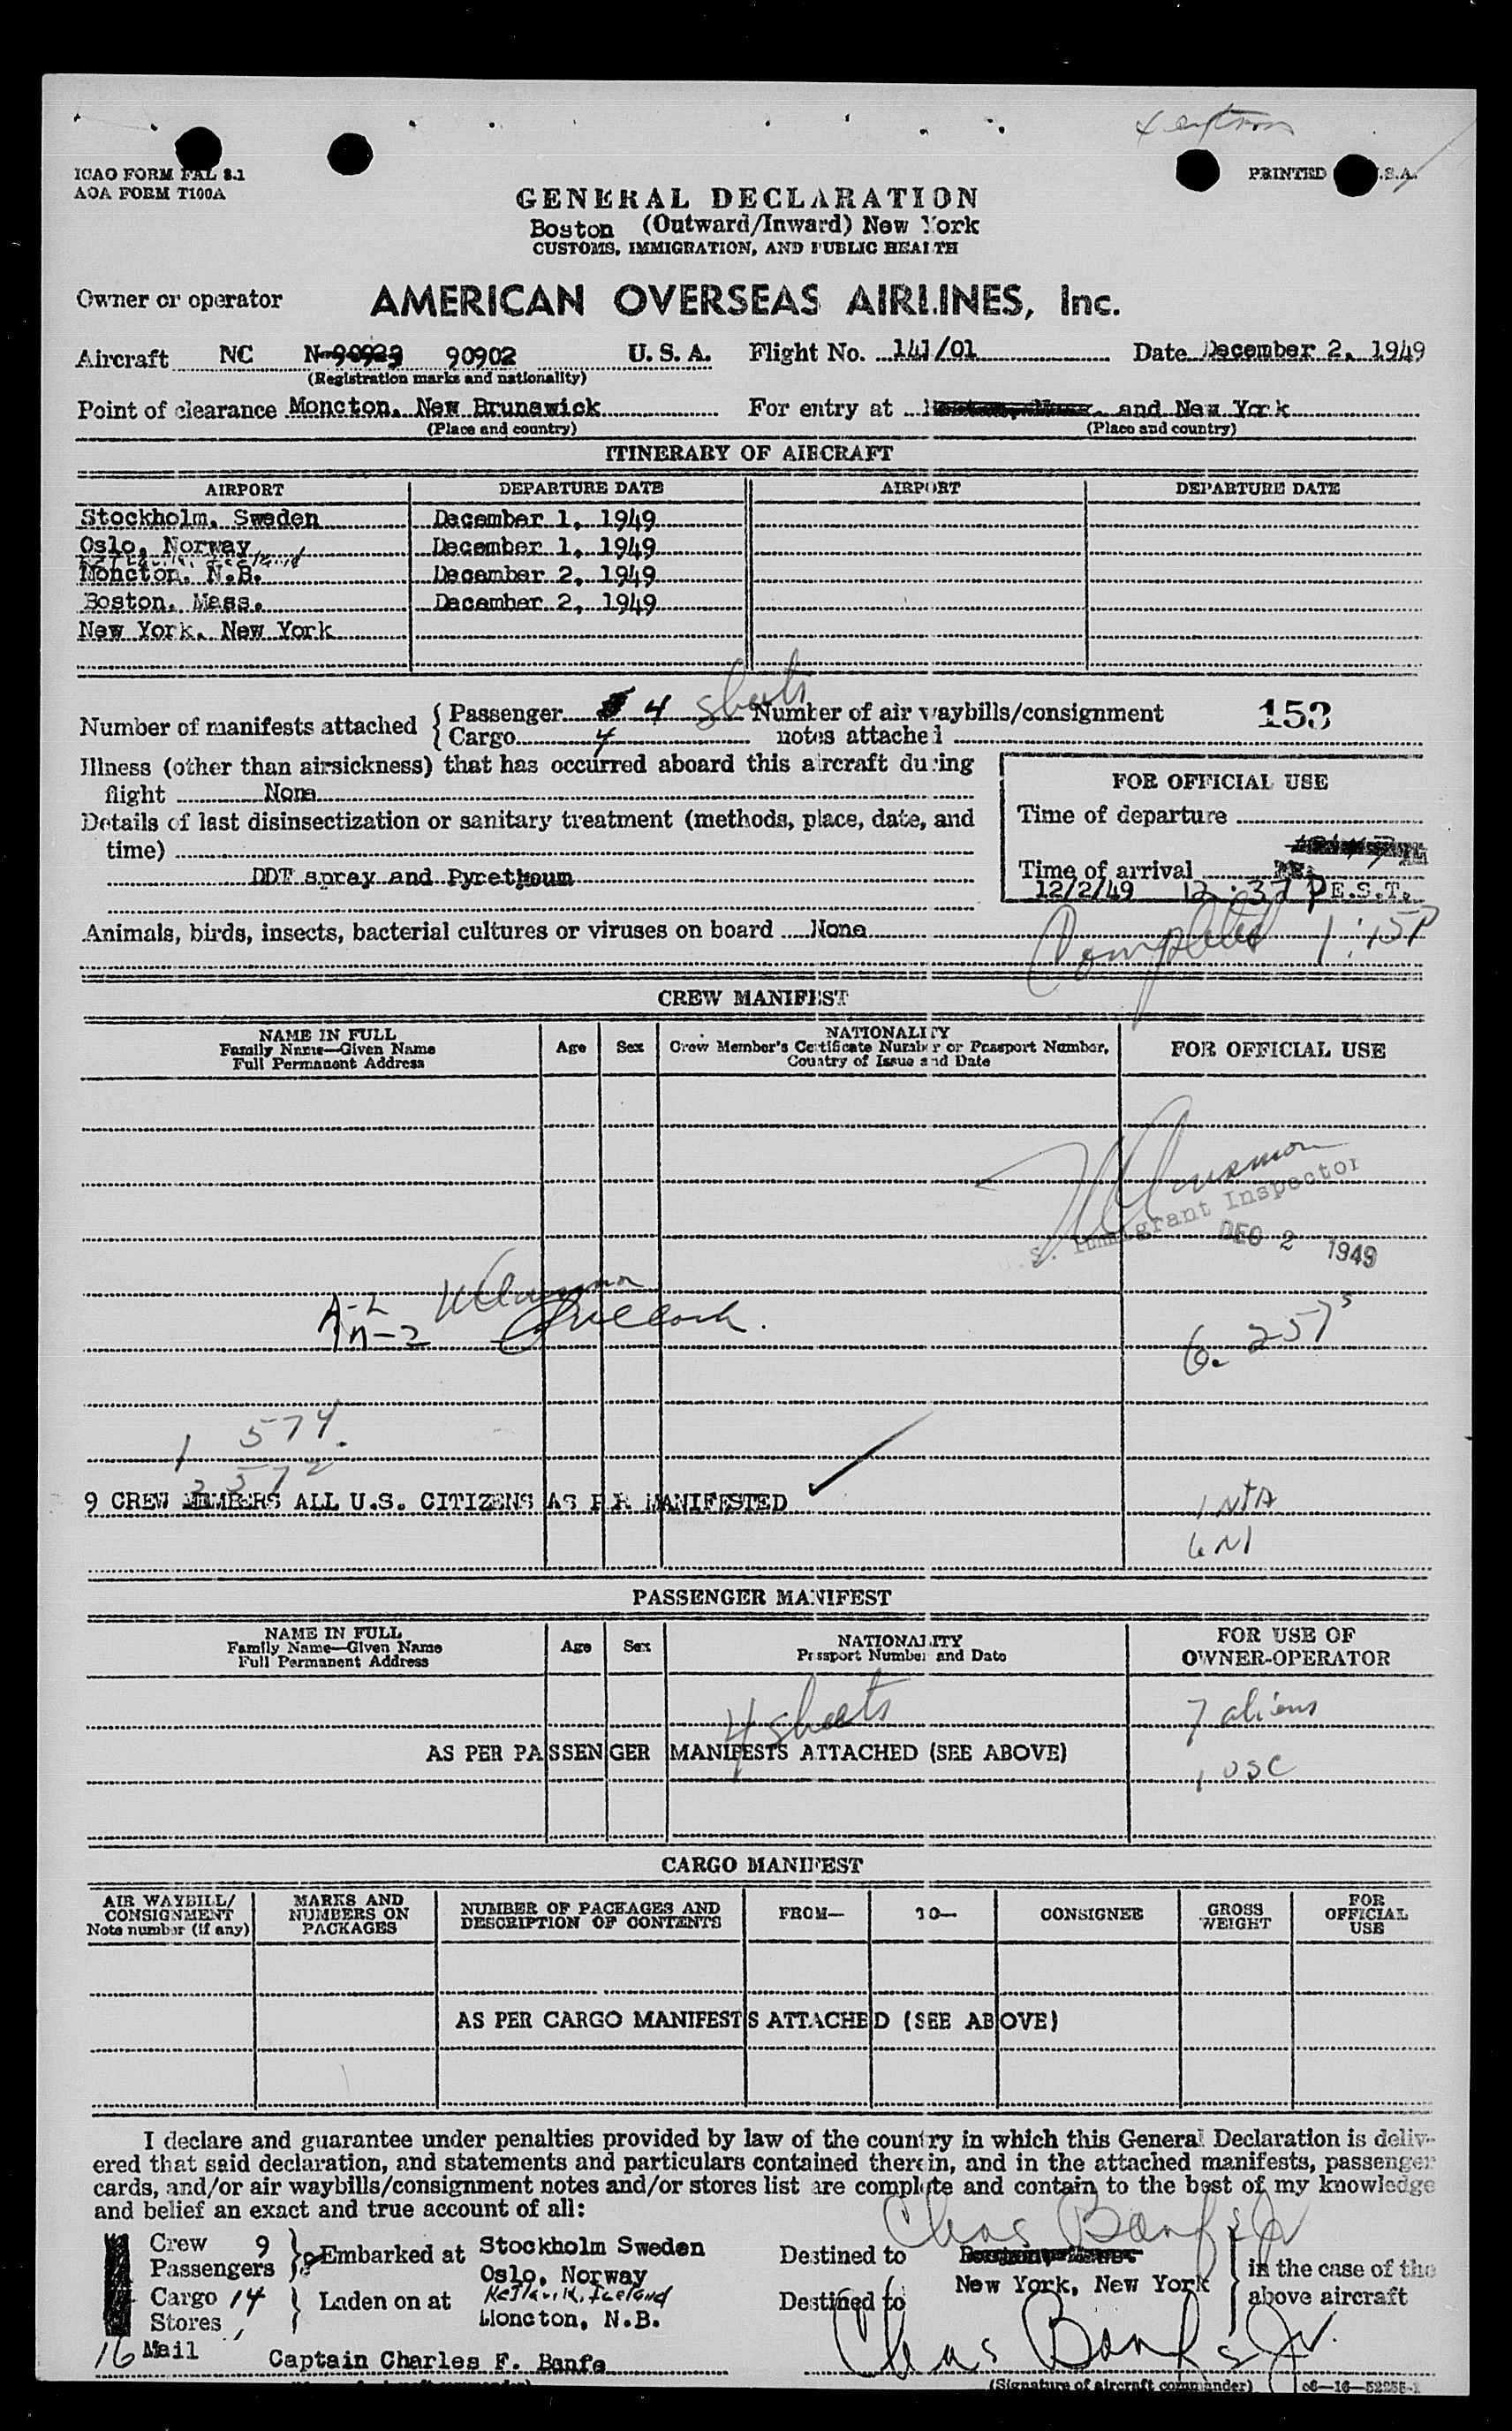 ICAO FORM FAL 8.1
PRINTED
AOA FORM T100A
GENERAL DECLARATION
Boston (Outward/Inward) New York
CUSTOMS, IMMIGRATION, AND PUBLIC HEALTH
Owner or operator AMERICAN OVERSEAS AIRLINES, Inc.
Aircraft NC N-90923 90902 U.S.A. Flight No. 141/01 Date December 2, 1949
(Registration marks and nationality)
Point of clearance Moncton, New Brunswick For entry at and New York
(Place and country) (Place and country)
ITINERARY OF AIRCRAFT
AIRPORT DEPARTURE DATE AIRPORT DEPARTURE DATE
Stockholm, Sweden December 1, 1949
Oslo, Norway December 1, 1949
Keflavik, Iceland
Moncton, N.B. December 2, 1949
Boston, Mass. December 2, 1949
New York, New York
Number of manifests attached { Passenger 4 sheets Number of air waybills/consignment 153
{ Cargo 4 notes attached
Illness (other than airsickness) that has occurred aboard this aircraft during
flight None
FOR OFFICIAL USE
Details of last disinsectization or sanitary treatment (methods, place, date, and
time)
Time of departure
DDT spray and Pyrethoum
Time of arrival
12/2/49 12:37 P E.S.T.
Animals, birds, insects, bacterial cultures or viruses on board None
Completed 1:15P
CREW MANIFEST
NAME IN FULL
Family Name—Given Name
Full Permanent Address
Age Sex
NATIONALITY
Crew Member's Certificate Number or Passport Number,
Country of Issue and Date
FOR OFFICIAL USE
U.S. Immigrant Inspector
DEC 2 1949
A-2
6. 257
1 574.
2 572
9 CREW MEMBERS ALL U.S. CITIZENS AS PER MANIFESTED
1 NTA
6 NI
PASSENGER MANIFEST
NAME IN FULL
Family Name—Given Name
Full Permanent Address
Age Sex
NATIONALITY
Passport Number and Date
FOR USE OF
OWNER-OPERATOR
4 sheets
7 aliens
AS PER PASSENGER MANIFESTS ATTACHED (SEE ABOVE)
1 USC
CARGO MANIFEST
AIR WAYBILL/
CONSIGNMENT
Note number (if any)
MARKS AND
NUMBERS ON
PACKAGES
NUMBER OF PACKAGES AND
DESCRIPTION OF CONTENTS
FROM— TO— CONSIGNEE
GROSS
WEIGHT
FOR
OFFICIAL
USE
AS PER CARGO MANIFESTS ATTACHED (SEE ABOVE)
I declare and guarantee under penalties provided by law of the country in which this General Declaration is deliv-
ered that said declaration, and statements and particulars contained therein, and in the attached manifests, passenger
cards, and/or air waybills/consignment notes and/or stores list are complete and contain to the best of my knowledge
and belief an exact and true account of all:
Chas Banfe Jr
Crew 9
Passengers 8 } Embarked at Stockholm Sweden Destined to
Oslo, Norway
in the case of the
Cargo 14
Stores } Laden on at Keflavik, Iceland Destined to New York, New York
above aircraft
Moncton, N.B.
Chas Banfe Jr.
16 Mail
Captain Charles F. Banfe
(Signature of aircraft commander)